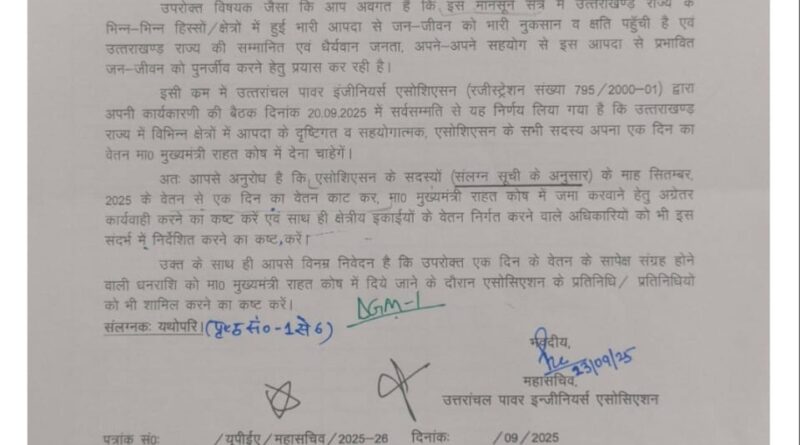 उपरोक्त विषयक जैसा कि आप अवगत है कि, इस मानसून सत्र में उत्तराखण्ड राज्य के
भिन्न-भिन्न हिस्सों/क्षेत्रों में हुई भारी आपदा से जन-जीवन को भारी नुकसान व क्षति पहुँची है एवं
उत्तराखण्ड राज्य की सम्मानित एवं धैर्यवान जनता, अपने-अपने सहयोग से इस आपदा से प्रभावित
जन-जीवन को पुनर्जीव करने हेतु प्रयास कर रही है।
इसी कम में उत्तरांचल पावर इंजीनियर्स एसोशिएसन (रजीस्ट्रेशन संख्या 795/2000-01) द्वारा
अपनी कार्यकारणी की बैठक दिनांक 20.09.2025 में सर्वसम्मति से यह निर्णय लिया गया है कि उत्तराखण्ड
राज्य में विभिन्न क्षेत्रों में आपदा के दृष्टिगत व सहयोगात्मक, एसोशिएसन के सभी सदस्य अपना एक दिन का
वेतन मा0 मुख्यमंत्री राहत कोष में देना चाहेगें।
अतः आपसे अनुरोध है कि, एसोशिएसन के सदस्यों (संलग्न सूची के अनुसार) के माह सितम्बर,
2025 के वेतन से एक दिन का वेतन काट कर, मा0 मुख्यमंत्री राहत कोष में जमा करवाने हेतु अग्रेतर
कार्यवाही करने का कष्ट करें एवं साथ ही क्षेत्रीय इकाईयों के वेतन निर्गत करने वाले अधिकारियों को भी इस
संदर्भ में निर्देशित करने का कष्ट करें।
उक्त के साथ ही आपसे विनम्र निवेदन है कि उपरोक्त एक दिन के वेतन के सापेक्ष संग्रह होने
वाली धनराशि को मा0 मुख्यमंत्री राहत कोष में दिये जाने के दौरान एसोसिएशन के प्रतिनिधि/ प्रतिनिधियों
को भी शामिल करने का कष्ट करें।
DGM-1
संलग्नकः यथोपरि। (पृष्ठ सं०-1 से 6)
भवदीय,
23/09/25
महासचिव,
उत्तरांचल पावर इन्जीनियर्स एसोसिएशन
पत्रांक सं0: /यूपीईए/महासचिव/2025-26 दिनांकः /09/2025